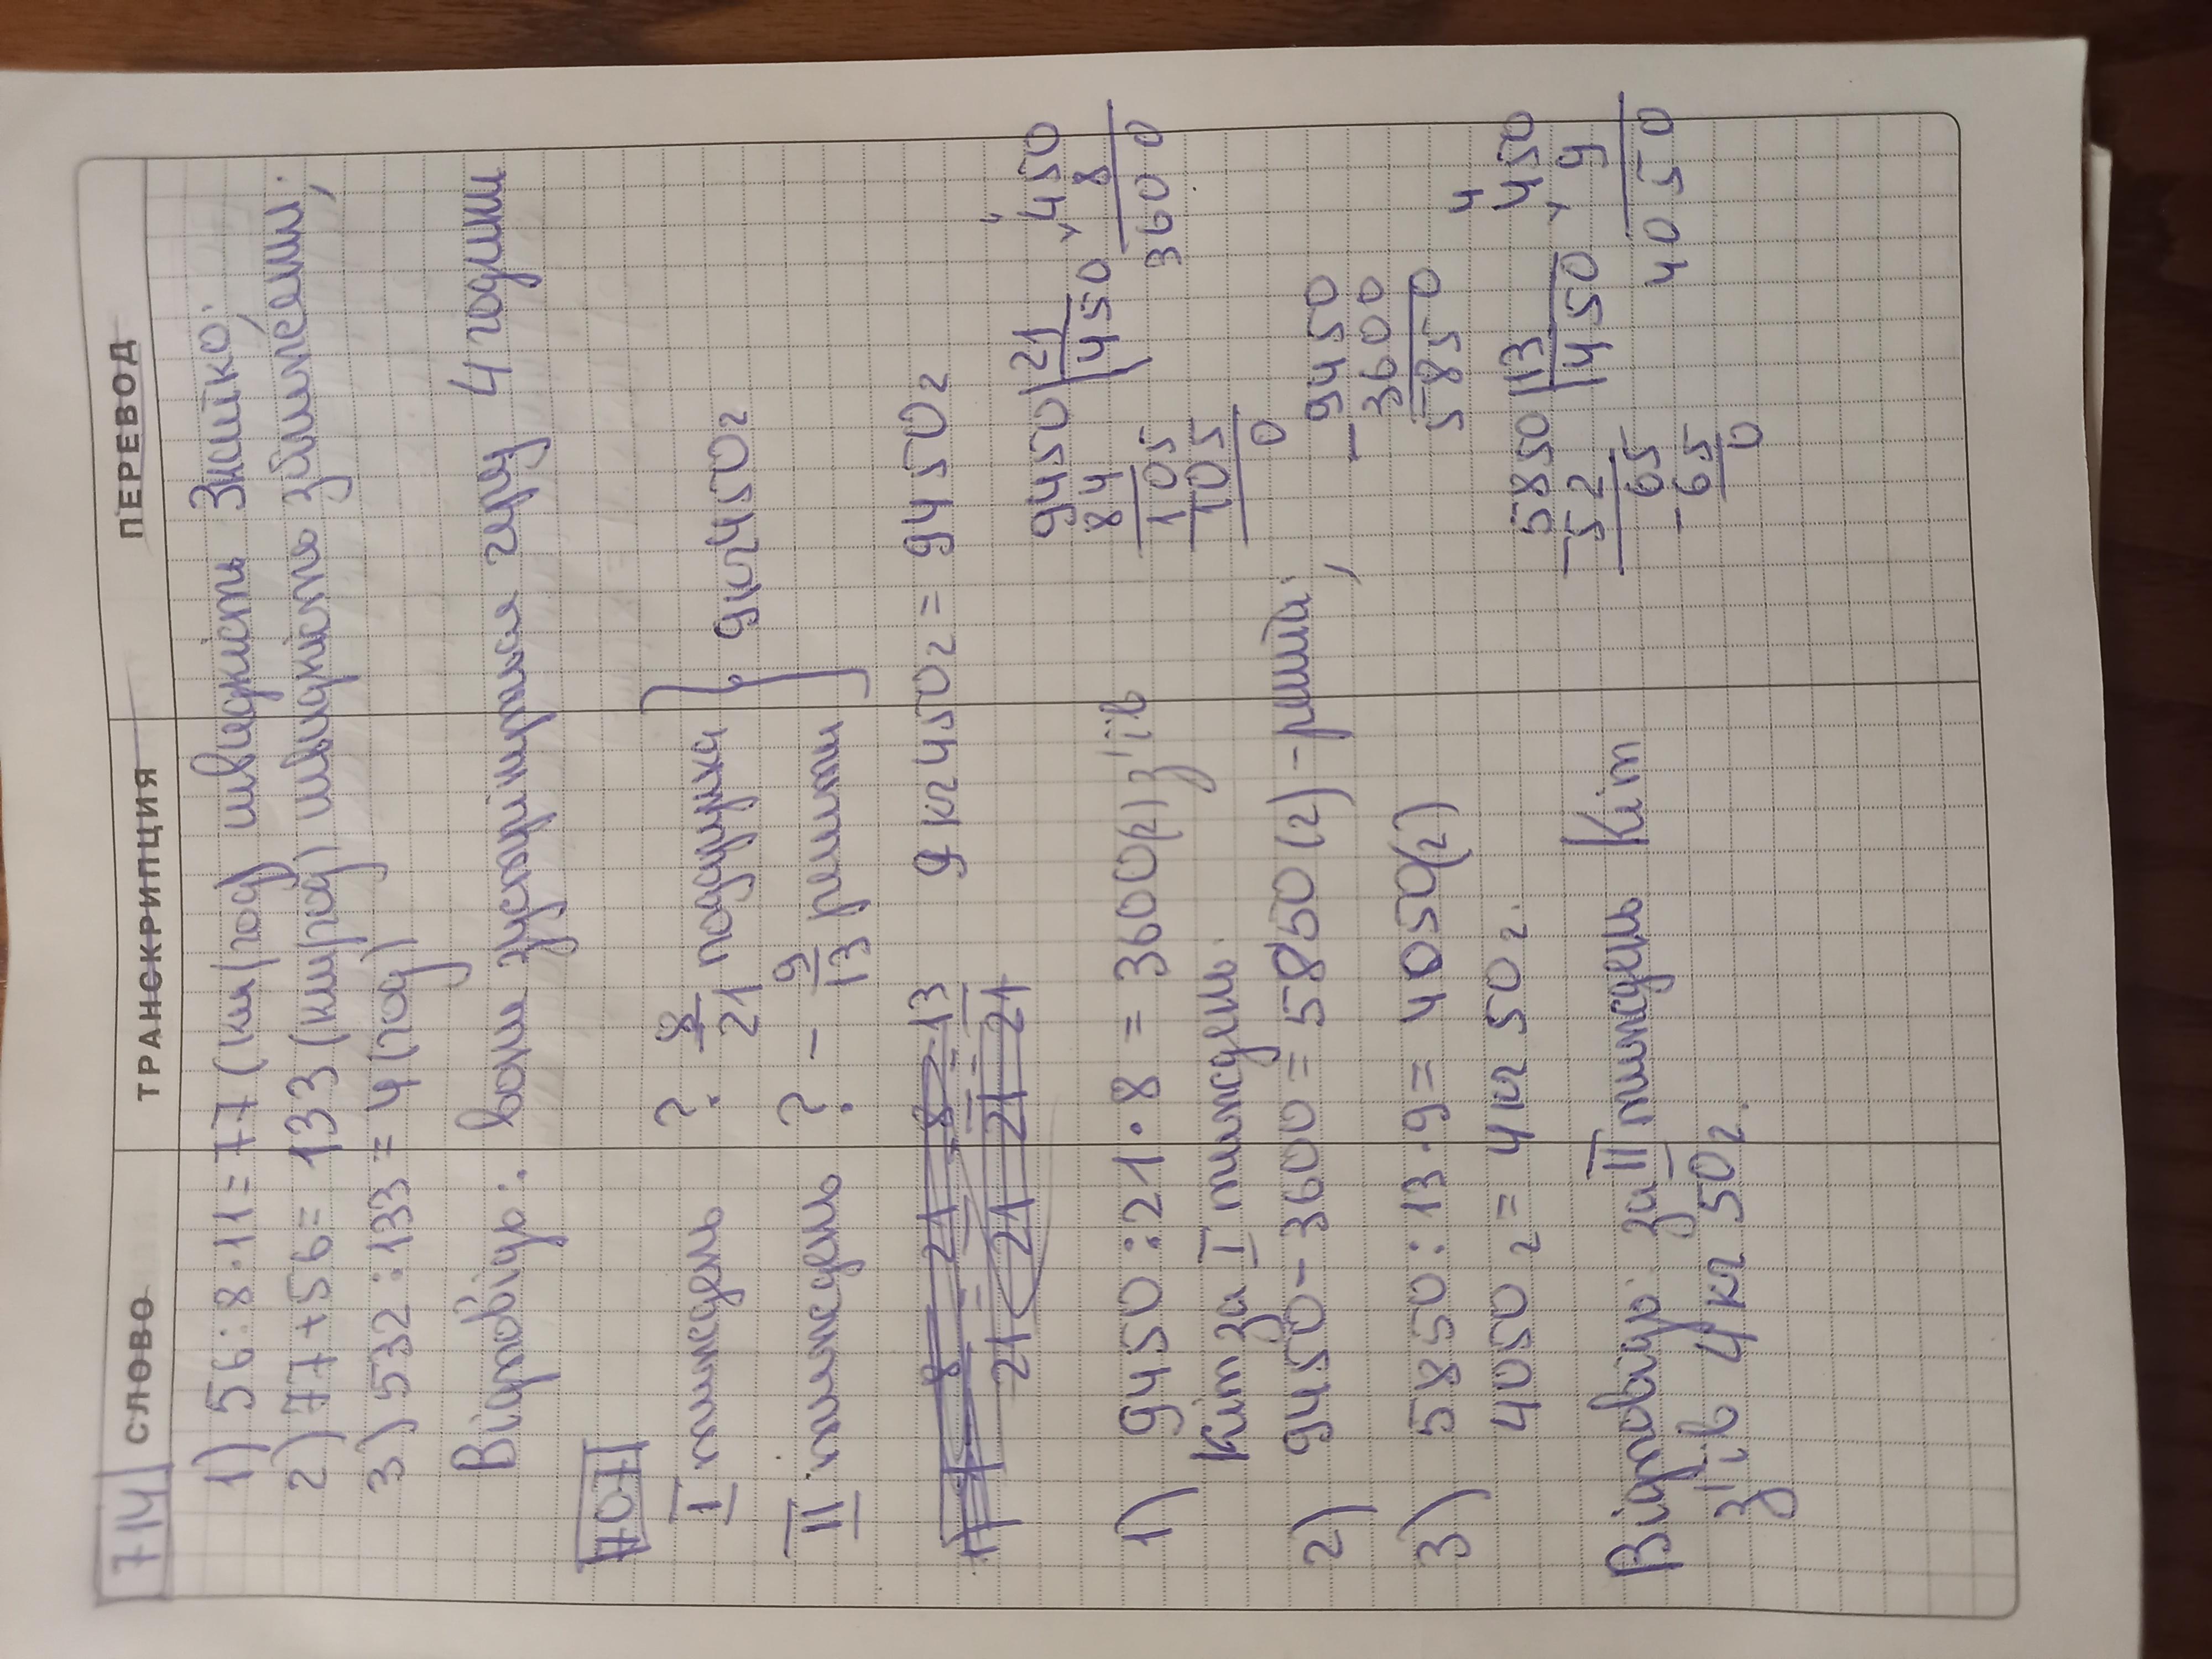 СЛОВО ТРАНСКРИПЦИЯ ПЕРЕВОД
714
1) 56 : 8 · 11 = 77 (км/год) швидкість Знайко.
2) 77 + 56 = 133 (км/год) швидкість
3) 532 : 133 = 4 (год)
Відповідь: вони зустрінуться через 4 години
707
I тиждень ? 8/21 подарунка } 9кг450г
II тиждень ? - 9/13 решти
9 кг 450г = 9450г
1) 9450 : 21 · 8 = 3600(г) з'їв
Кіт за I тиждень.
2) 9450 - 3600 = 5850 (г) - решта;
3) 5850 : 13 · 9 = 4050(г)
4050г = 4 кг 50г.
Відповідь: за II тиждень Кіт
з'їв 4 кг 50г.
9450 | 21
84 | 450
105
105
0
450
× 8
3600
- 9450
3600
5850
5850 | 13
- 52 | 450
65
- 65
0
4
450
× 9
4050